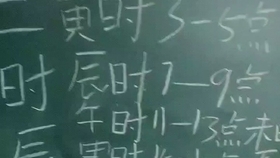 一寅时3-5点
时辰时7-9点
午时11-13点未